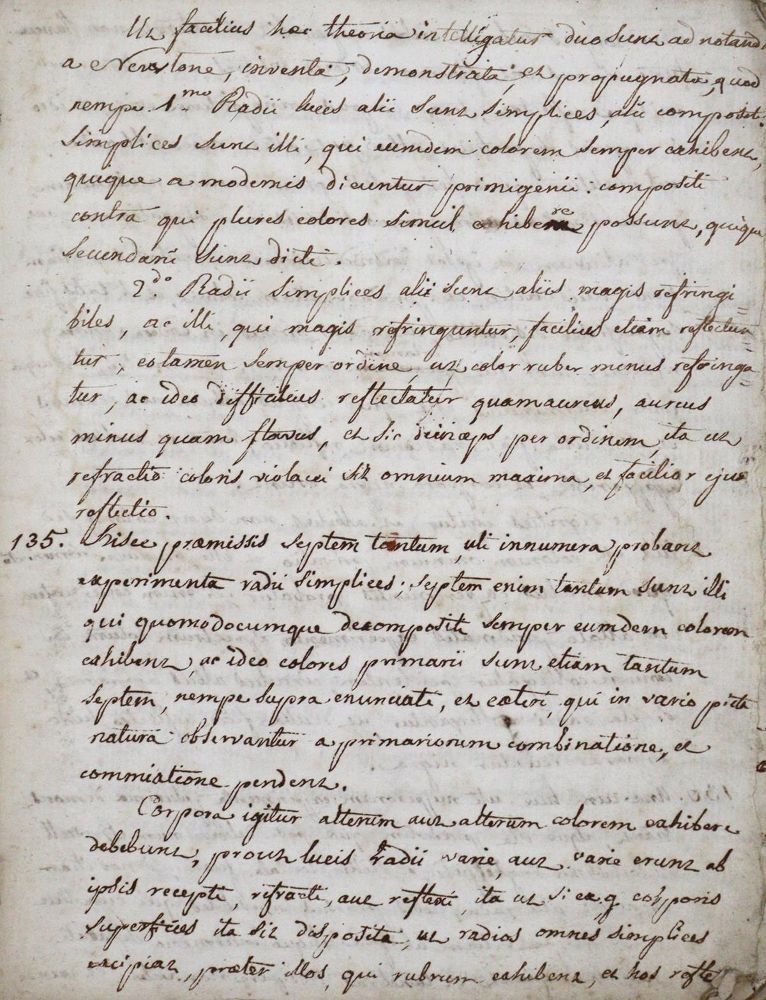 Ut facilius hæc theoria intelligatur duo sunt ad notand
a Newtone, inventa, demonstrata, et propugnata, quod
nempe 1.mo Radii lucis alii sunt simplices, alii composit.
Simplices sunt illi, qui eumdem colorem semper exhibent,
quique a modernis dicuntur primigenii: compositi
contra qui plures colores simul exhibere possunt, quique
secundarii sunt dicti.
2.do Radii simplices alii sunt aliis magis refringi
biles, ac illi, qui magis refringuntur, facilius etiam reflectun
tur, eo tamen semper ordine, ut color ruber minus refringa
tur, ac ideo difficilius reflectatur quam aureus, aureus
minus quam flavus, et sic deinceps per ordinem, ita ut
refractio coloris violacei sit omnium maxima, et facilior ejus
reflectio.
135. Hisce præmissis septem tantum, uti innumera probant
experimenta radii simplices; septem enim tantum sunt illi
qui quomodocumque decompositi semper eumdem colorem
exhibent, ac ideo colores primarii sunt etiam tantum
septem, nempe supra enunciati, et cæteri, qui in vario picta
natura observantur a primariorum combinatione, et
commixtione pendent.
Corpora igitur alterum aut alterum colorem exhibere
debebunt, prout lucis radii varie, aut varie erunt ab
ipsis recepti, refracti, aut reflexi, ita ut si ex. g. corporis
superficies ita sit disposita, ut radios omnes simplices
excipiat, præter illos, qui rubrum exhibent, et hos refle